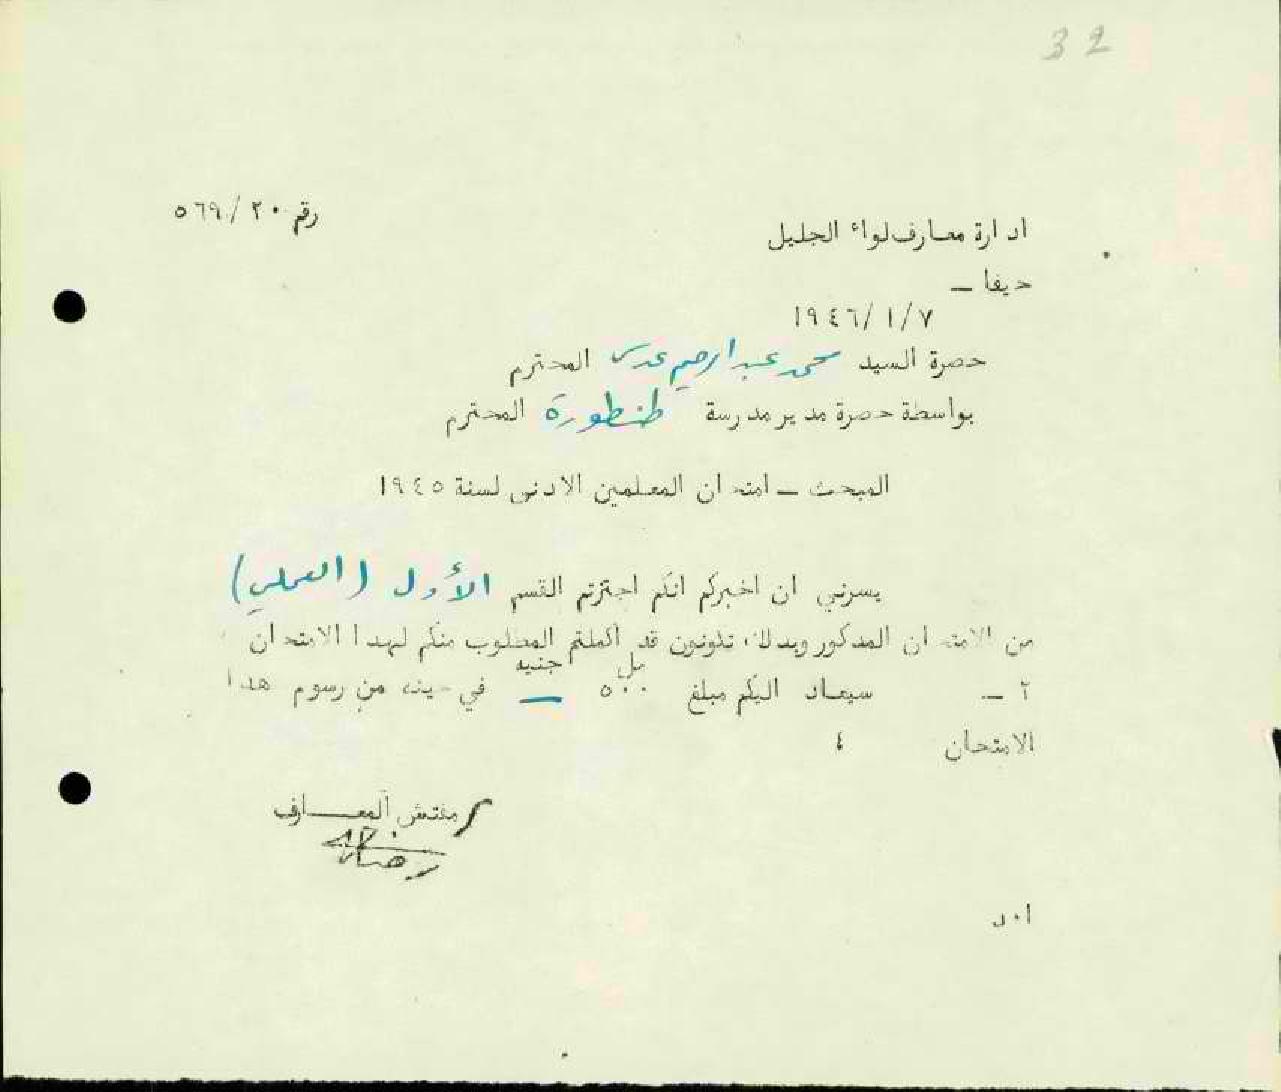 32
رقم ٢٠/٥٦٩
ادارة معارف لواء الجليل
حيفا —
١٩٤٦/١/٧
حضرة السيد محمد عبد الرحيم عدس المحترم
بواسطة حضرة مدير مدرسة طنطورة المحترم
المبحث — امتحان المعلمين الادنى لسنة ١٩٤٥
يسرني ان اخبركم انكم اجتزتم القسم الأول (العملي)
من الامتحان المذكور وبذلك تكونون قد اكملتم المطلوب منكم لهذا الامتحان
مل جنيه
٢ — سيعاد اليكم مبلغ ٥٠٠ — في حينه من رسوم هذا
الامتحان ٤
مفتش المعارف
ا٠د